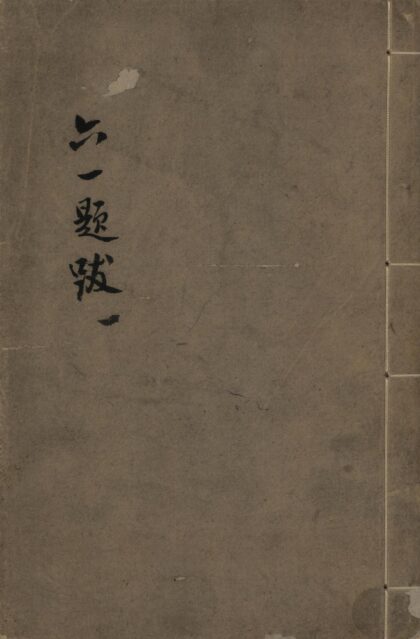 六一題跋一